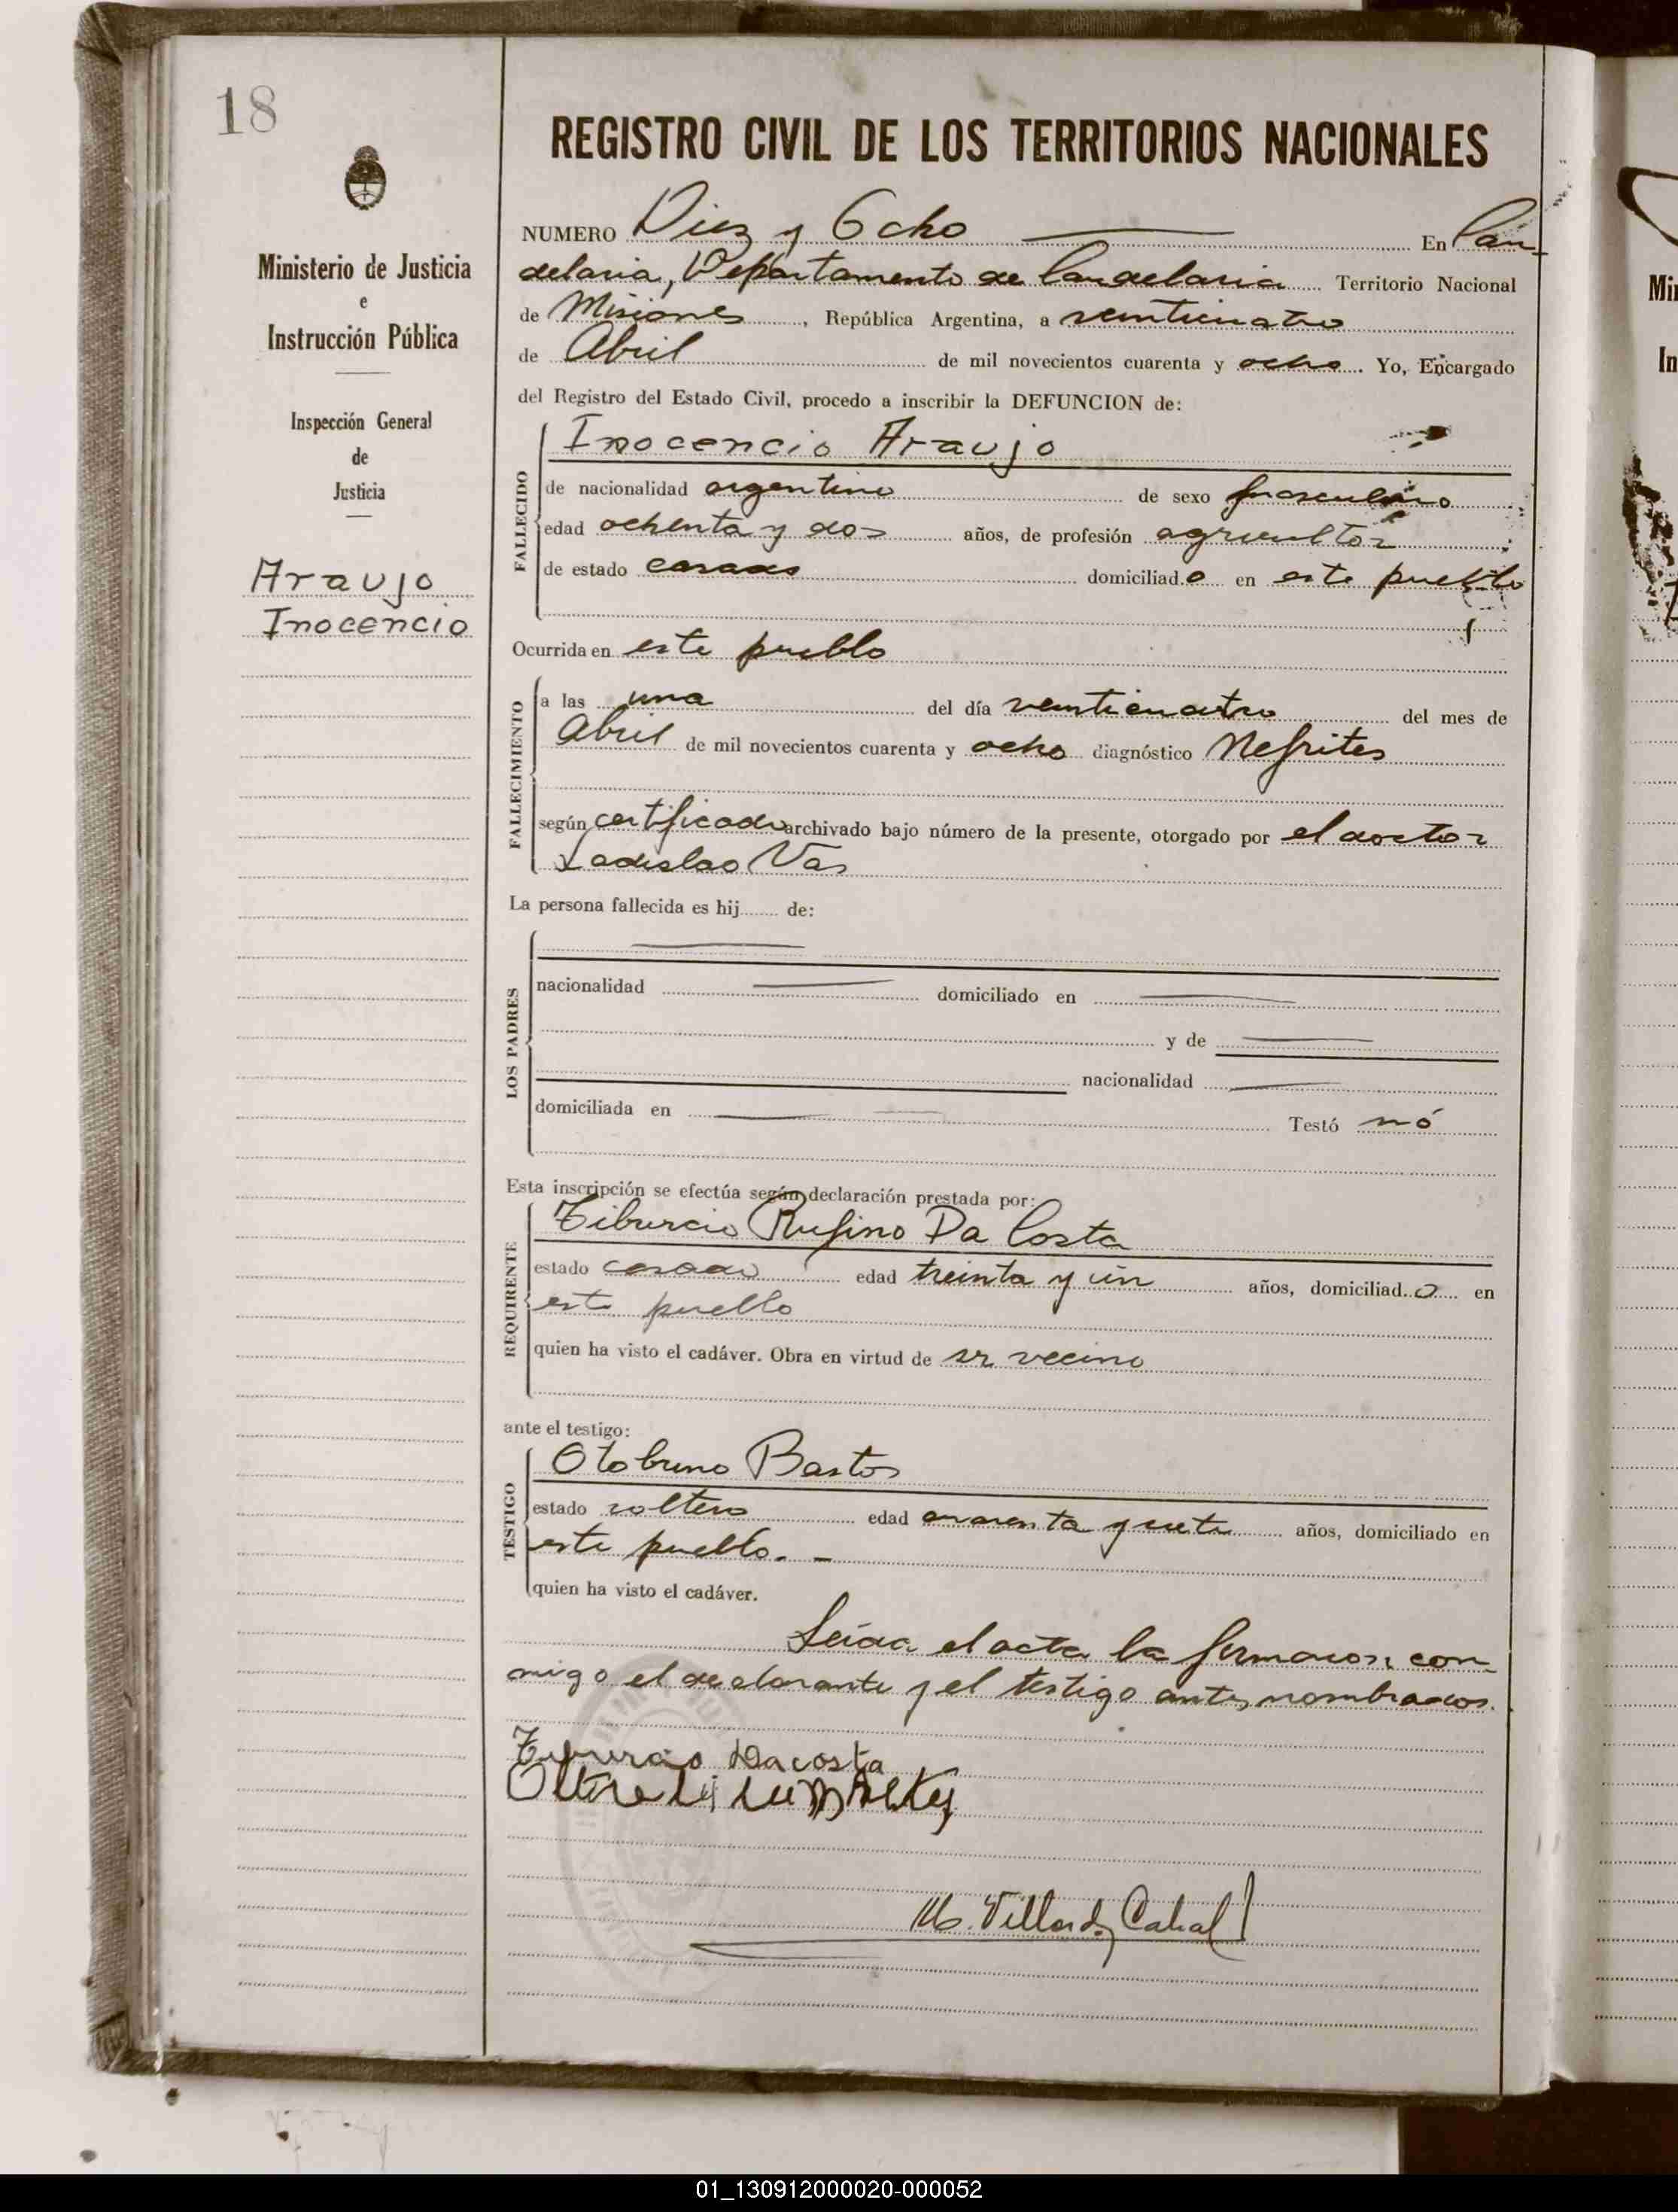 18
Ministerio de Justicia
e
Instrucción Pública
Inspección General
de
Justicia
Araujo
Inocencio
REGISTRO CIVIL DE LOS TERRITORIOS NACIONALES
NUMERO Diez y Ocho En Can-
delaria, Departamento de Candelaria Territorio Nacional
de Misiones, República Argentina, a veinticuatro
de Abril de mil novecientos cuarenta y ocho. Yo, Encargado
del Registro del Estado Civil, procedo a inscribir la DEFUNCION de:
FALLECIDO
Inocencio Araujo
de nacionalidad argentino de sexo masculino
edad ochenta y dos años, de profesión agricultor
de estado casado domiciliado en este pueblo
Ocurrida en este pueblo
FALLECIMIENTO
a las una del día veinticuatro del mes de
Abril de mil novecientos cuarenta y ocho diagnóstico Nefrites
según certificado archivado bajo número de la presente, otorgado por el doctor
Ladislao Vas
La persona fallecida es hij........ de:
LOS PADRES
nacionalidad domiciliado en
y de
nacionalidad
domiciliada en Testó nó
Esta inscripción se efectúa según declaración prestada por:
REQUIRENTE
Tiburcio Rufino Da Costa
estado casado edad treinta y un años, domiciliado en
este pueblo
quien ha visto el cadáver. Obra en virtud de ser vecino
ante el testigo:
TESTIGO
Otobruno Bastos
estado soltero edad cuarenta y siete años, domiciliado en
este pueblo. -
quien ha visto el cadáver.
Leída el acta la firmaron con-
migo el declarante y el testigo antes nombrados.
Tiburcio Dacosta
M. Villordo Cabal
Mi
In
01_130912000020-000052